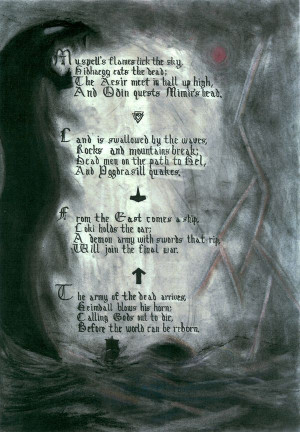 Muspell's flames lick the sky,
Nidhaegg eats the dead;
The Aesir meet in hall up high,
And Odin quests Mimir's head.
Land is swallowed by the waves,
Rocks and mountains break;
Dead men on the path to Hel,
And Yggdrasill quakes.
From the East comes a ship,
Loki holds the oar;
A demon army with swords that rip,
Will join the final war.
The army of the dead arrives;
Heimdall blows his horn;
Calling Gods out to die,
Before the world can be reborn.